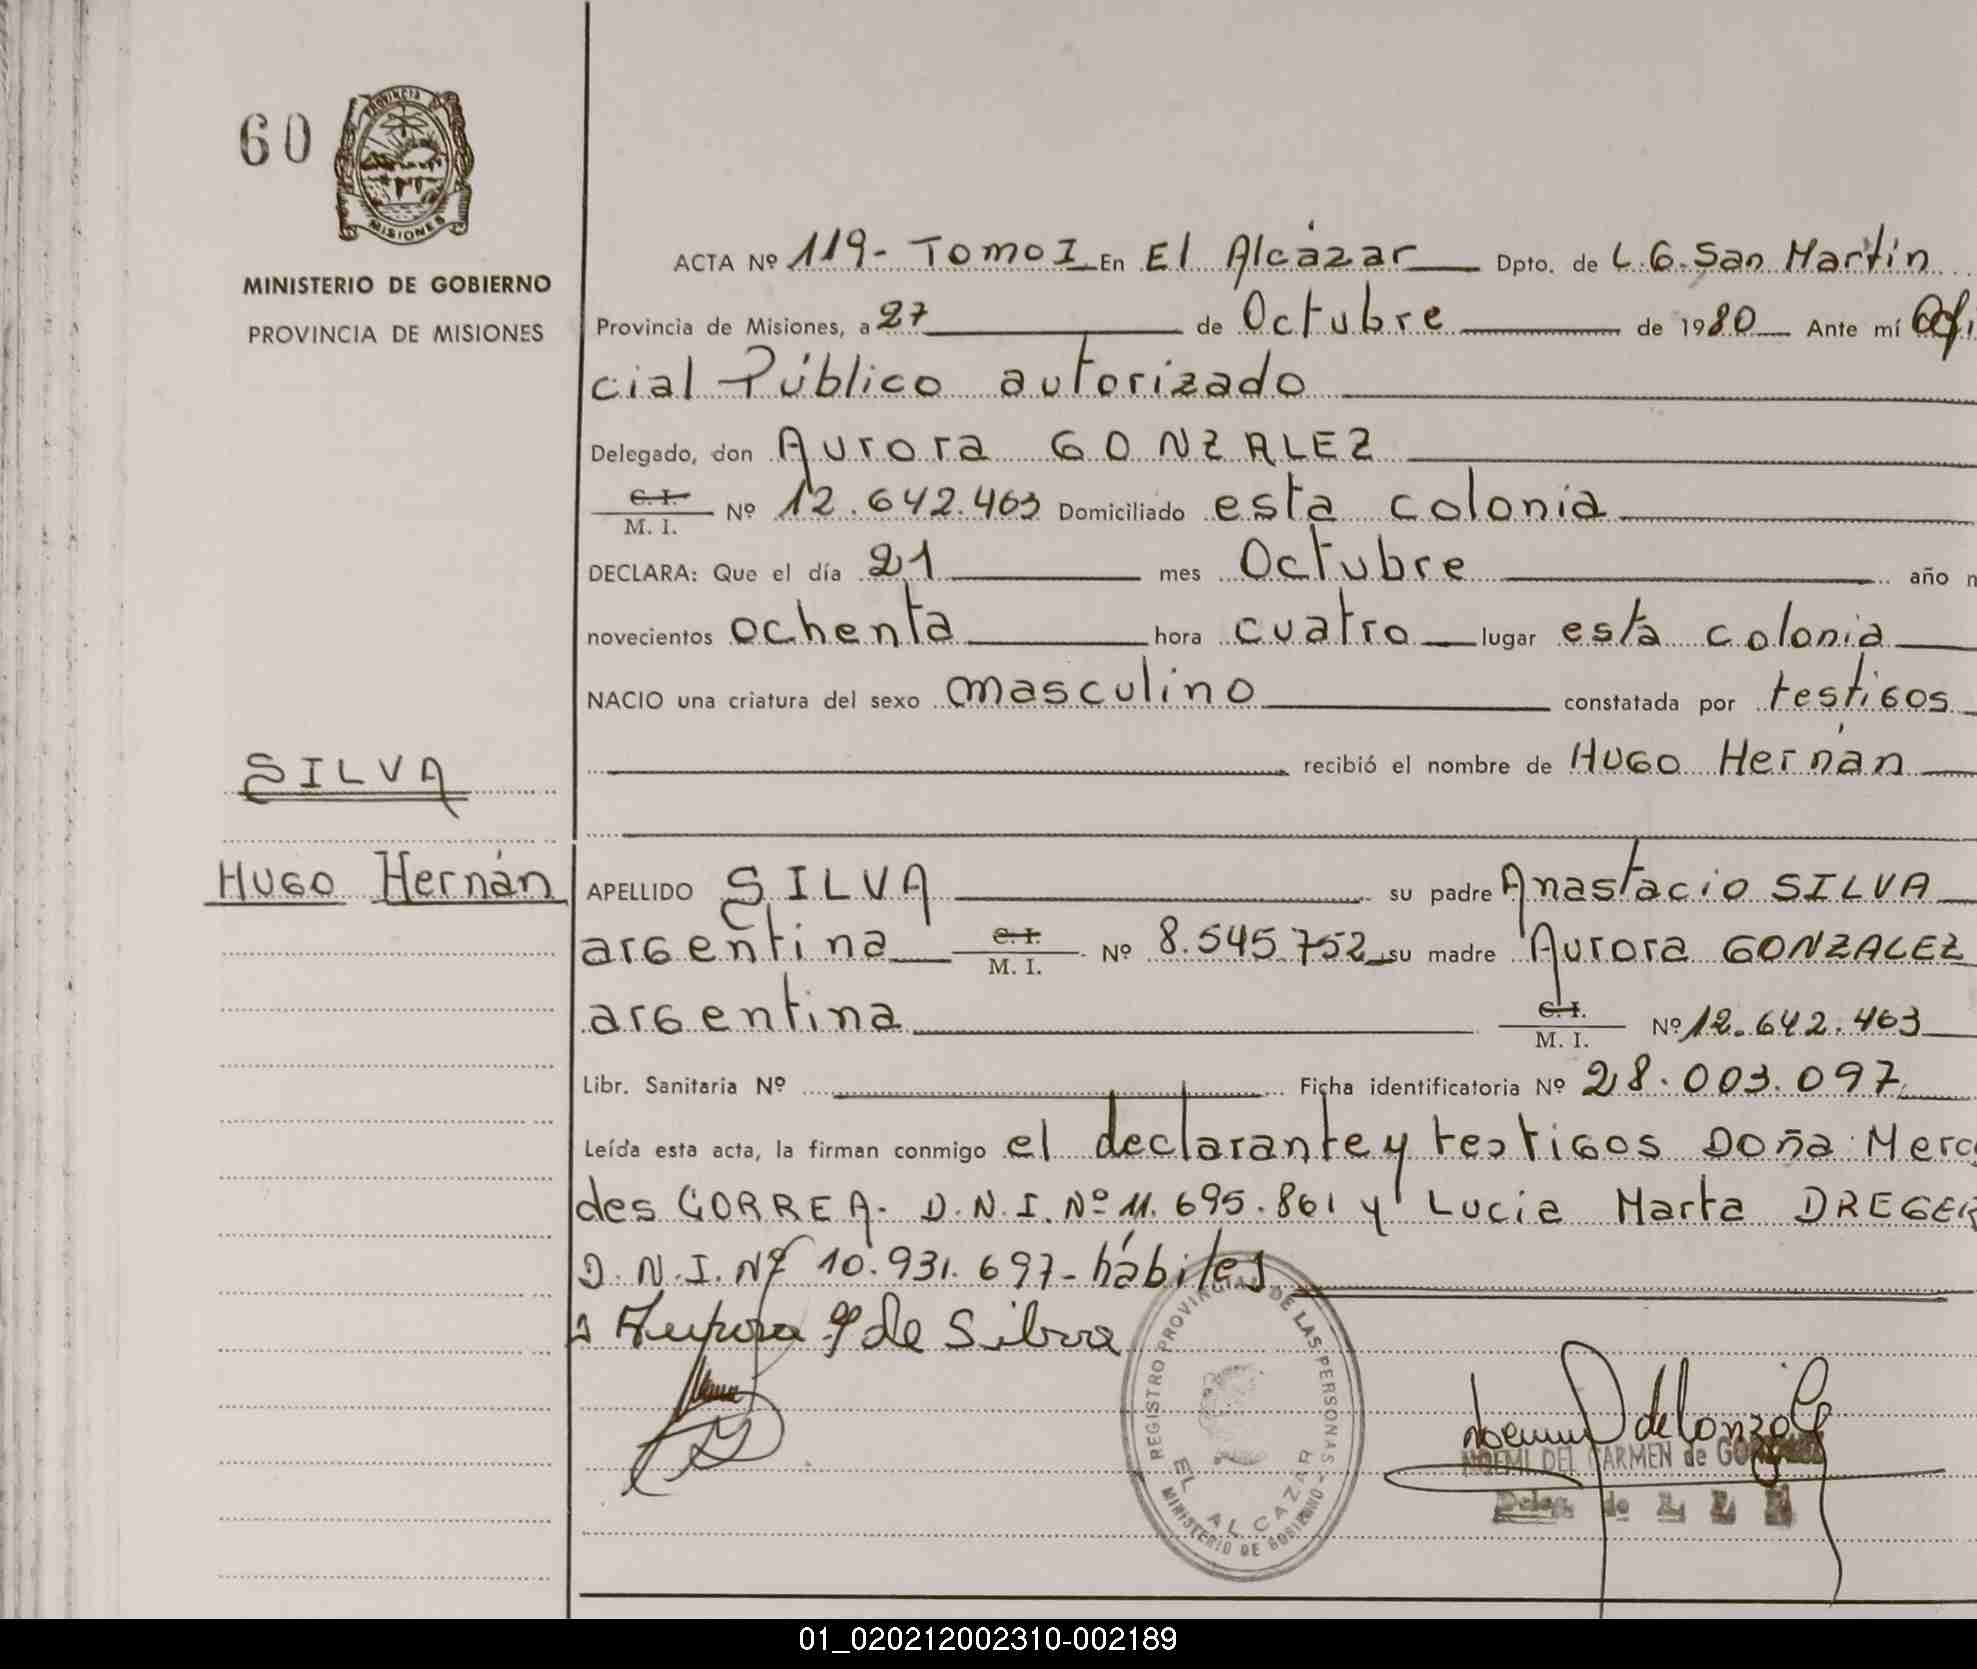 60
PROVINCIA
MISIONES
MINISTERIO DE GOBIERNO
PROVINCIA DE MISIONES
SILVA
HUGO Hernán
ACTA Nº 119- Tomo I En El Alcázar Dpto. de L. G. San Martín
Provincia de Misiones, a 27 de Octubre de 1980 Ante mí Ofi
cial Público autorizado
Delegado, don Aurora GONZALEZ
C. I.
M. I. Nº 12.642.463 Domiciliado esta colonia
DECLARA: Que el día 21 mes Octubre año
novecientos ochenta hora cuatro lugar esta colonia
NACIO una criatura del sexo masculino constatada por testigos
recibió el nombre de HUGO Hernán
APELLIDO SILVA su padre Anastacio SILVA
argentina C. I. M. I. Nº 8.545.752 su madre Aurora GONZALEZ
argentina C. I. M. I. Nº 12.642.463
Libr. Sanitaria Nº Ficha identificatoria Nº 28.003.097
Leída esta acta, la firman conmigo el declarante y testigos Doña Merce
des CORREA- D.N.I. Nº 11.695.861 y Lucia Marta DREGER
D.N.I. Nº 10.931.697- hábiles
Aurora G de Silva
REGISTRO PROVINCIAL DE LAS PERSONAS
EL ALCAZAR
MINISTERIO DE GOBIERNO
NOEMI DEL CARMEN de
Deleg.
01_020212002310-002189